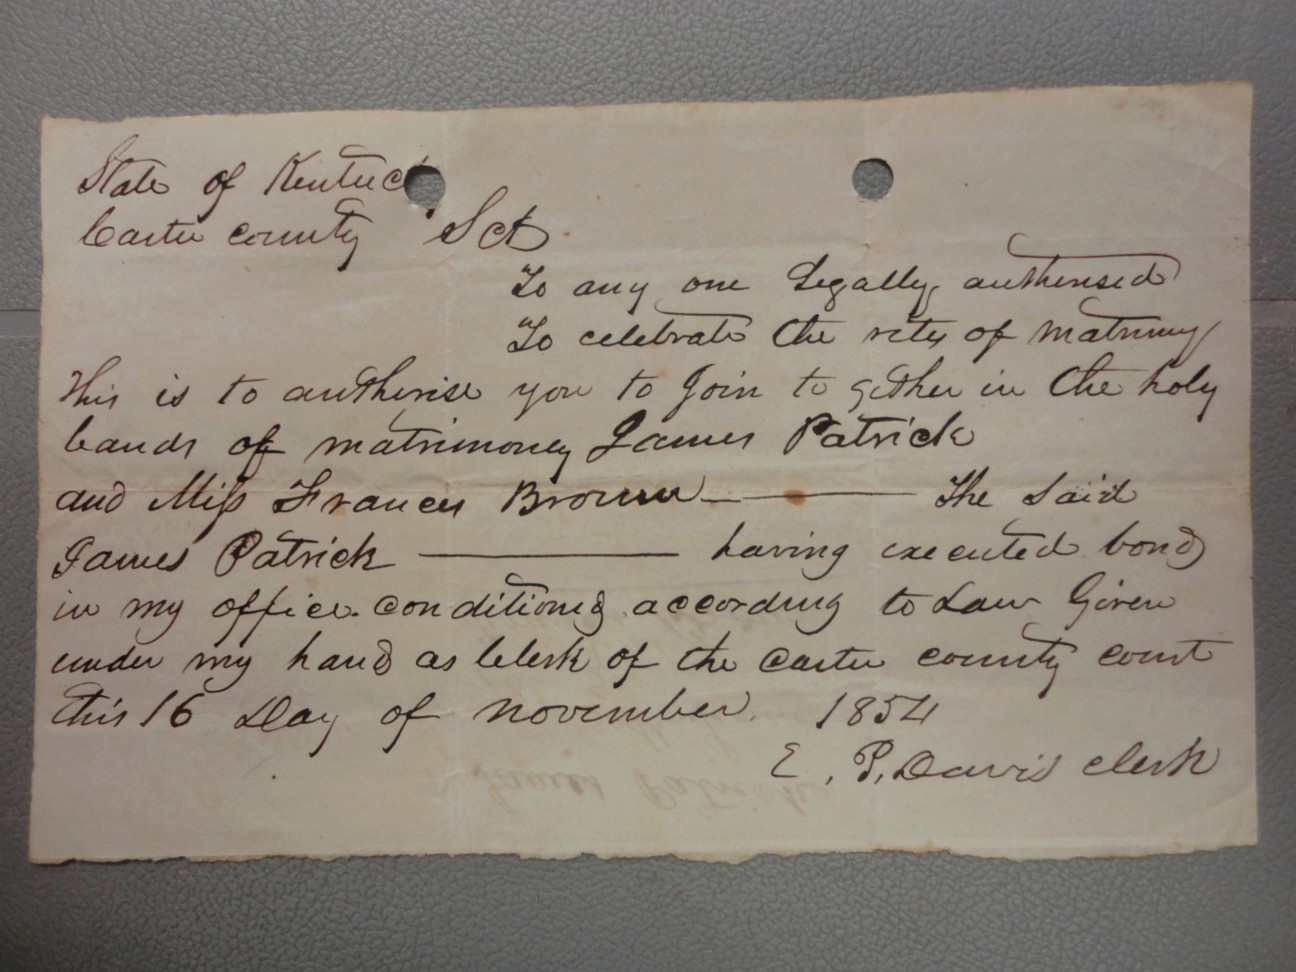 State of Kentuc
Carter county Sct
To any one Legally autherised
To celebrate the rites of matrimony
This is to autherise you to Join to gether in the holy
bands of matrimoney James Patrick
and Miss Frances Brown — The Said
James Patrick — having executed bond
in my office conditioned according to Law Given
under my hand as Clerk of the Carter county court
this 16 Day of november 1854
E. P. Davis clerk
James Patrick